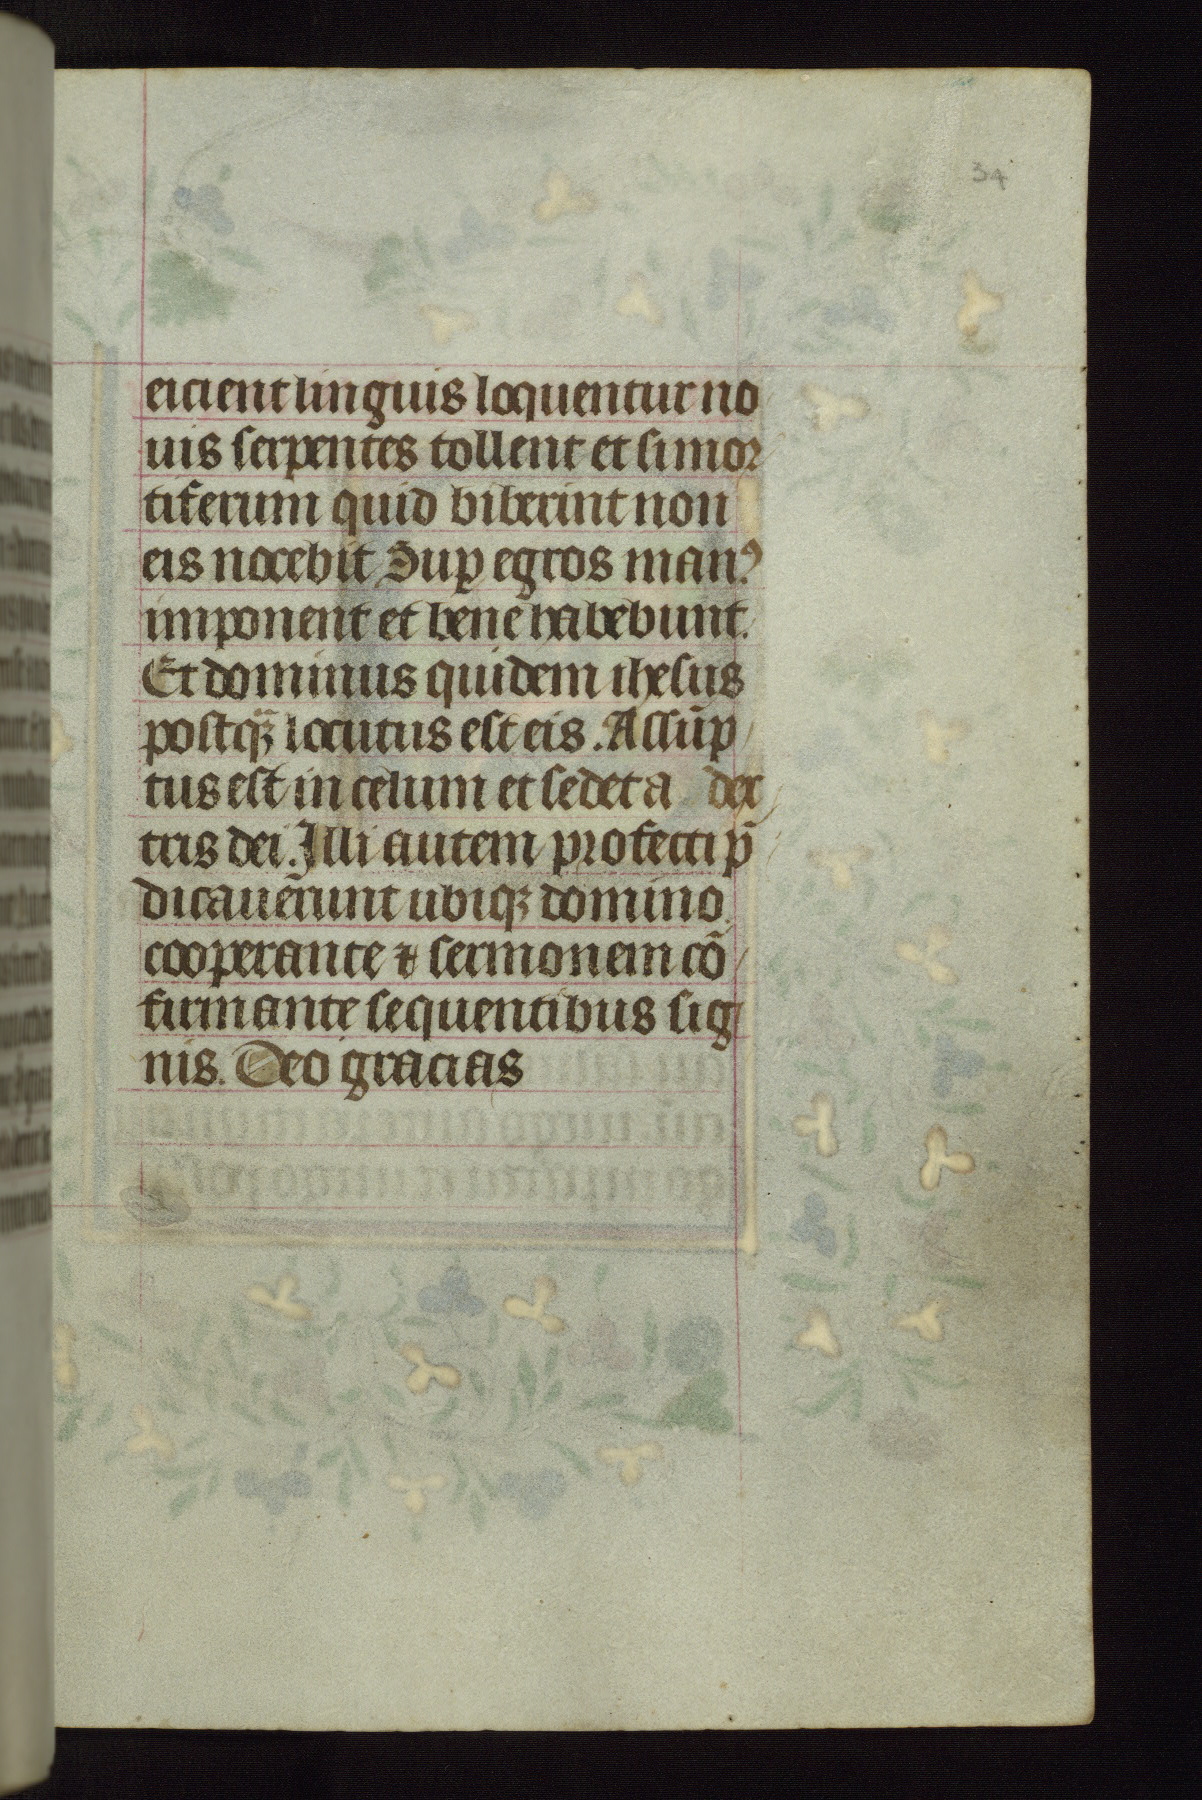 34
eicient linguis loquentur no
uis serpentes tollent et si mor
tiferum quid biberint non
eis nocebit Sup̱ egros manꝰ
imponent et bene habebunt.
Et dominus quidem ihesus
postqꝫ̄ locutus est eis. Assūp
tus est in celum et sedet a dex
tris dei. Illi autem profecti p̄
dicauerunt ubiqꝫ domino
cooperante ⁊ sermonem cō
firmante sequentibus sig
nis. Deo gracias